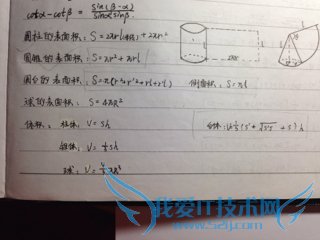 cotα-cotβ = sin(β-α)/sinαsinβ
圆柱的表面积: S=2πrl(侧) + 2πr²
圆锥的表面积: S=πr²+πrl
圆台的表面积: S=π(r'²+r²+r'l+rl) 侧面积: S=πrl
球的表面积: S=4πR²
体积: 柱体 V=Sh 台体: V=⅓(S'+√S'S+S)h
锥体: V=⅓Sh
球: V=4/3πR³
我爱IT技术网